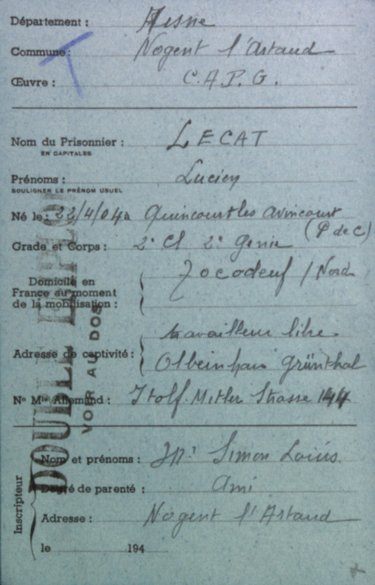 Département : Aisne
Commune : Nogent l'Artaud
Œuvre : C.A.P.G.
Nom du Prisonnier : LECAT
EN CAPITALES
Prénoms : Lucien
SOULIGNER LE PRÉNOM USUEL
Né le : 22/4/04 à Quincourt les avincourt
(P de C)
Grade et Corps : 2e Cl 2e Génie
Domicile en
France au moment
de la mobilisation :
/ Nord
travailleur libre
Adresse de captivité :
Grünthal
No Mle Allemand : Strasse 144
DOUBLE EMPLOI
VOIR AU DOS
Inscripteur
Nom et prénoms : Mr Simon Louis
Degré de parenté : ami
Adresse : Nogent l'Artaud
le 194